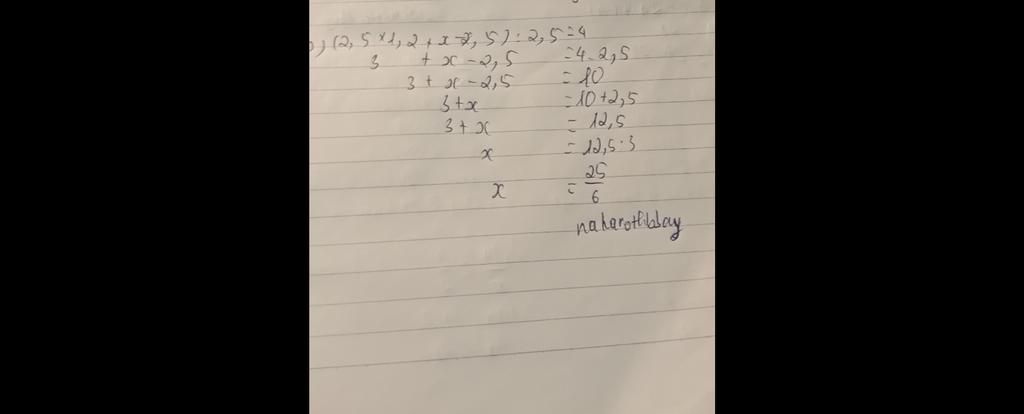 b) (2,5 × 1,2 + x - 2,5) : 2,5 = 4
3 + x - 2,5 = 4 . 2,5
3 + x - 2,5 = 10
3 + x = 10 + 2,5
3 + x = 12,5
x = 12,5 : 3
x = 25/6
naharothibbay